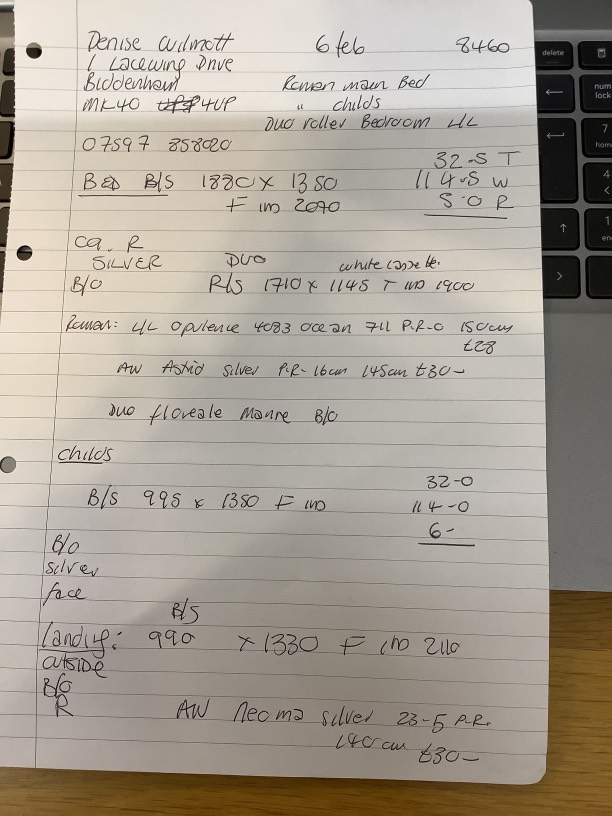 Denise Wilmott 6 feb 8460
1 Lacewing Drive
Biddenham Roman main Bed
MK40 4UP " childs
Duo roller Bedroom L/L
07597 858020
32-5 T
BED B/S 1880 x 1350 114-5 W
F IND 2090 5-0 R
Ca. R
SILVER DUO white cassette.
B/O R/S 1710 x 1145 T IND 1900
Roman: L/L Opulence 4083 Ocean 711 P.R-0 150cm
£28
AW Astrid Silver P.R- 16cm 145cm £30-
Duo floreale B/O
Childs
32-0
B/S 995 x 1350 F IND 114-0
6-
B/O
silver
face
B/S
Landing: 990 x 1330 F IND 2110
outside
B/O
R AW Neoma silver 23-5 P.R.
140cm £30-
delete
num
lock
7
home
4
1
end